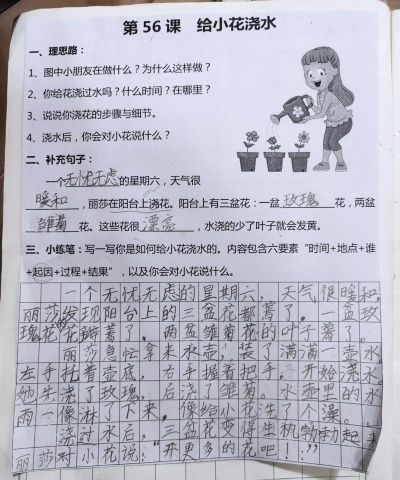 第56课 给小花浇水
一、理思路：
1、图中小朋友在做什么？为什么这样做？
2、你给花浇过水吗？什么时间？在哪里？
3、说说你浇花的步骤与细节。
4、浇水后，你会对小花说什么？
二、补充句子：
一个无忧无虑的星期六，天气很
暖和，丽莎在阳台上浇花。阳台上有三盆花：一盆玫瑰花，两盆
雏菊花。这些花很漂亮，水浇的少了叶子就会发黄。
三、小练笔：写一写你是如何给小花浇水的。内容包含六要素“时间+地点+谁
+起因+过程+结果”，以及你会对小花说什么。
一个无忧无虑的星期六，天气很暖和，
丽莎发现阳台上的三盆花都蔫了。一盆玫
瑰花的花瓣蔫了。两盆雏菊花的叶子蔫了。
丽莎急忙拿来水壶，装了满满一壶水
左手托着壶底，右手握着把手，开始浇水。
她先浇了玫瑰，后浇了雏菊。水壶里的水
雨一像淋了下来，像给小花洗了个澡。
浇过水后，三盆花变得生机勃勃起
丽莎对小花说：“开更多的花吧！”